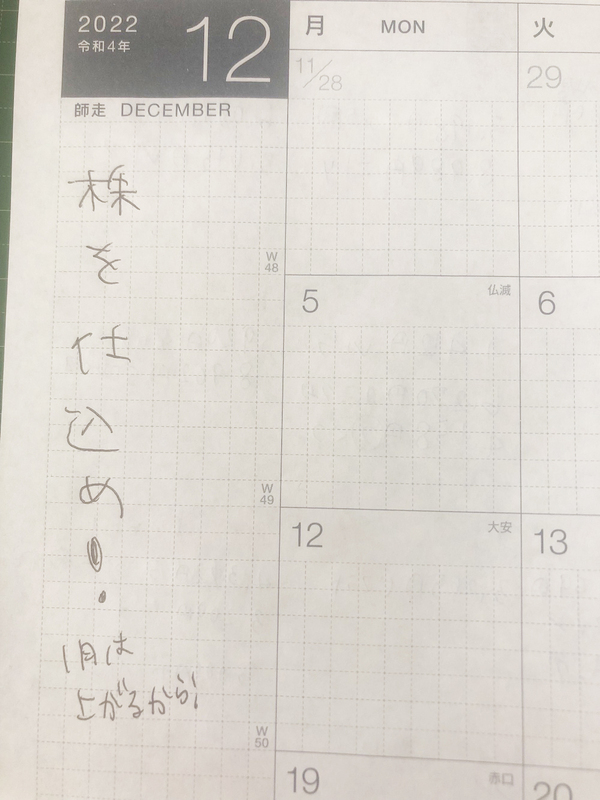 2022
令和4年
12
師走 DECEMBER
月 MON
火
11/28
29
株
を
仕
込
め
!
1月は
上がるから!
W
48
5
仏滅
6
W
49
12
大安
13
W
50
19
赤口
20